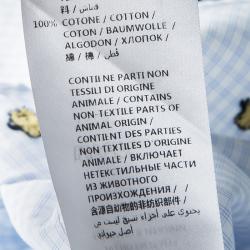 料 / قماش /
100% COTONE / COTTON /
COTON / BAUMWOLLE /
ALGODON / ХЛОПОК /
棉 / 棉 / قطن /
CONTIENE PARTI NON
TESSILI DI ORIGINE
ANIMALE / CONTAINS
NON-TEXTILE PARTS OF
ANIMAL ORIGIN /
CONTIENT DES PARTIES
NON TEXTILES D'ORIGINE
ANIMALE / ВКЛЮЧАЕТ
НЕТЕКСТИЛЬНЫЕ ЧАСТИ
ИЗ ЖИВОТНОГО
ПРОИСХОЖДЕНИЯ / /
含源自动物的非纺织部件 /
يحتوي على أجزاء نسيج ليست من
أصل حيواني